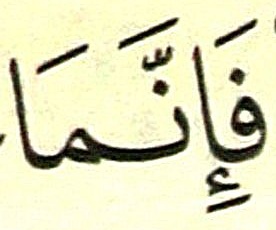 فَإِنَّمَا